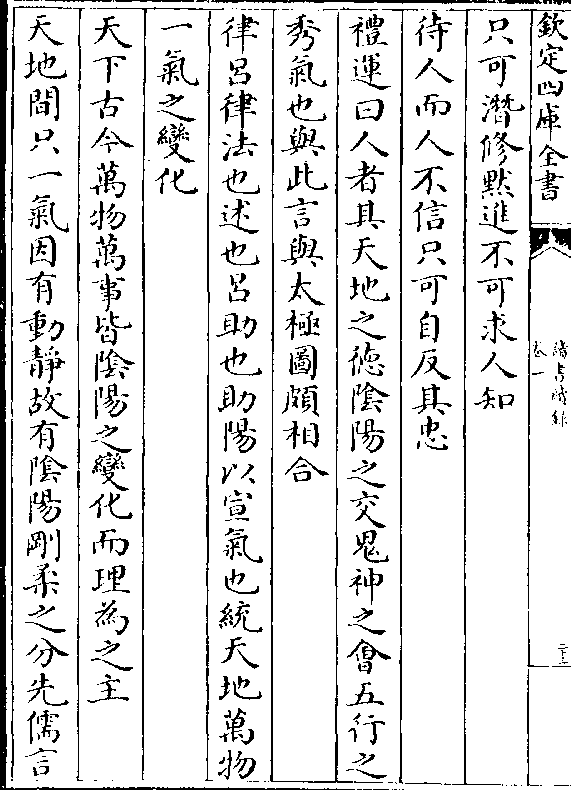 欽定四庫全書
讀書續錄
卷一
二十三
只可潛修默進不可求人知
待人而人不信只可自反其忠
禮運曰人者其天地之德陰陽之交鬼神之會五行之
秀氣也與此言與太極圖頗相合
律呂律法也述也呂助也助陽以宣氣也統天地萬物
一氣之變化
天下古今萬物萬事皆陰陽之變化而理為之主
天地間只一氣因有動靜故有陰陽剛柔之分先儒言